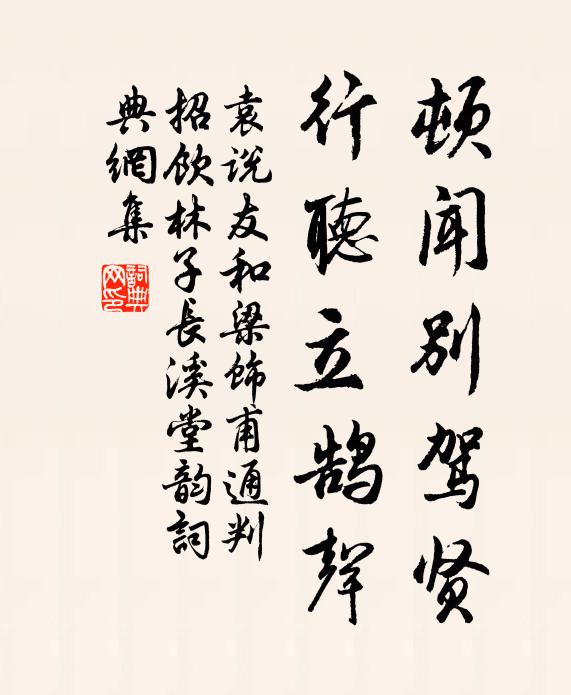 顿闻别驾贤
行聴立鹄声
袁说友和梁饰甫通判
招饮林子長溪堂韵詞
典網集
詞典网印